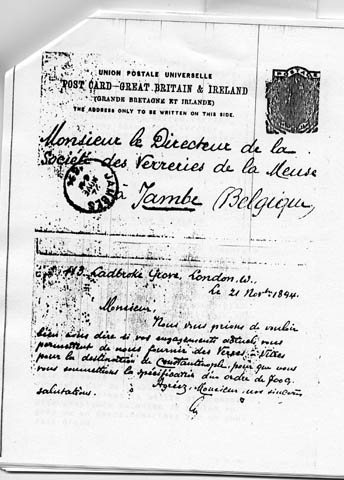 UNION POSTALE UNIVERSELLE
POST CARD-GREAT BRITAIN & IRELAND
(GRANDE BRETAGNE ET IRLANDE)
THE ADDRESS ONLY TO BE WRITTEN ON THIS SIDE.
POSTAGE
Monsieur le Directeur de la
Société des Verreries de la Meuse
à Jambe (Belgique)
JAMBES
113. Ladbroke Grove, London. W.,
Le 21 Novbr 1894.
Monsieur,
Nous vous prions de vouloir
bien nous dire si vos engagements actuels vous
permettent de nous fournir des Verres à Vitres
pour la destination de Constantinople, pour que nous
vous soumettions la spécification d'un ordre de
Agréez, Monsieur, nos sincères
salutations.